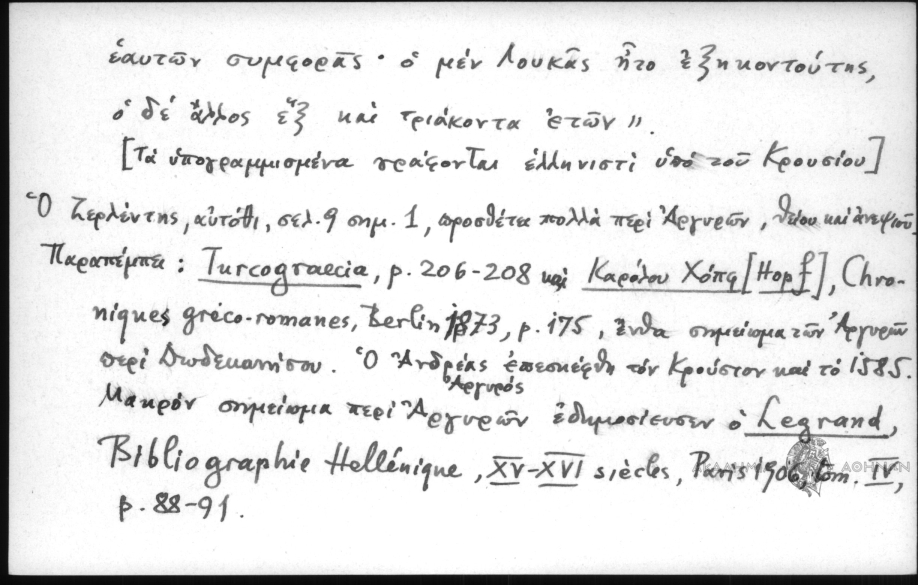 ἑαυτῶν συμφορᾶς· ὁ μέν Λουκᾶς ἦτο ἑξηκοντούτης,
ὁ δέ ἄλλος ἕξ καί τριάκοντα ἐτῶν».
[Τά ὑπογραμμισμένα γράφονται ἑλληνιστί ὑπό τοῦ Κρουσίου]
Ὁ Ζερλέντης, αὐτόθι, σελ. 9 σημ. 1, προσθέτει πολλά περί Ἀργυρῶν, θείου καί ἀνεψιοῦ.
Παραπέμπει: Turcograecia, p. 206-208 καί Καρόλου Χόπφ [Hopf], Chro-
niques gréco-romanes, Berlin 1873, p. 175, ἔνθα σημείωμα τῶν Ἀργυρῶν
περί Δωδεκανήσου. Ὁ Ἀνδρέας ἐπεσκέφθη τόν Κρούσιον καί τό 1585.
Ἀργυρός
Μακρόν σημείωμα περί Ἀργυρῶν ἐδημοσίευσεν ὁ Legrand,
Bibliographie Hellénique, XV-XVI siècles, Paris 1906, tom. IV,
ΑΘΗΝΩΝ
p. 88-91.